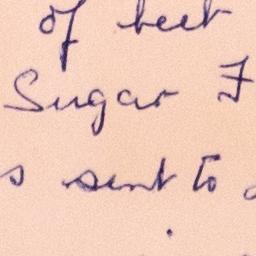 of beet
Sugar F
s sent to